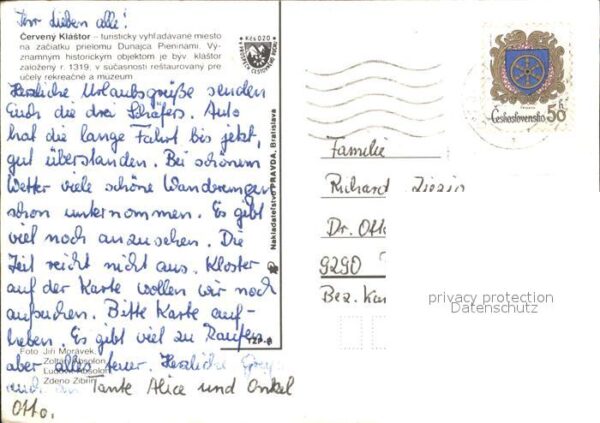 Ihr Lieben alle!
Červený Kláštor – turisticky vyhľadávané miesto
na začiatku prielomu Dunajca Pieninami. Vý-
znamným historickým objektom je býv. kláštor
založený r. 1319, v súčasnosti reštaurovaný pre
účely rekreačné a muzeum
Herzliche Urlaubsgrüße senden
Euch die drei Schäfers. Auto
hat die lange Fahrt bis jetzt,
gut überstanden. Bei schönem
Wetter viele schöne Wanderungen
schon unternommen. Es gibt
viel noch anzusehen. Die
Zeit reicht nicht aus. Kloster
auf der Karte wollen wir noch
aufsuchen. Bitte Karte auf-
heben. Es gibt viel zu kaufen
aber alles teuer. Herzliche
auch
Tante Alice und Onkel
Otto.
Foto: Jiří Morávek,
Zoltán Absolon
Absolon
Zdeno Zibrín
Kčs 0,20
Nakladateľstvo PRAVDA, Bratislava
Československo
50 h
Familie
Richard
Dr. Otto
9290
Bez. Kar
privacy protection
Datenschutz